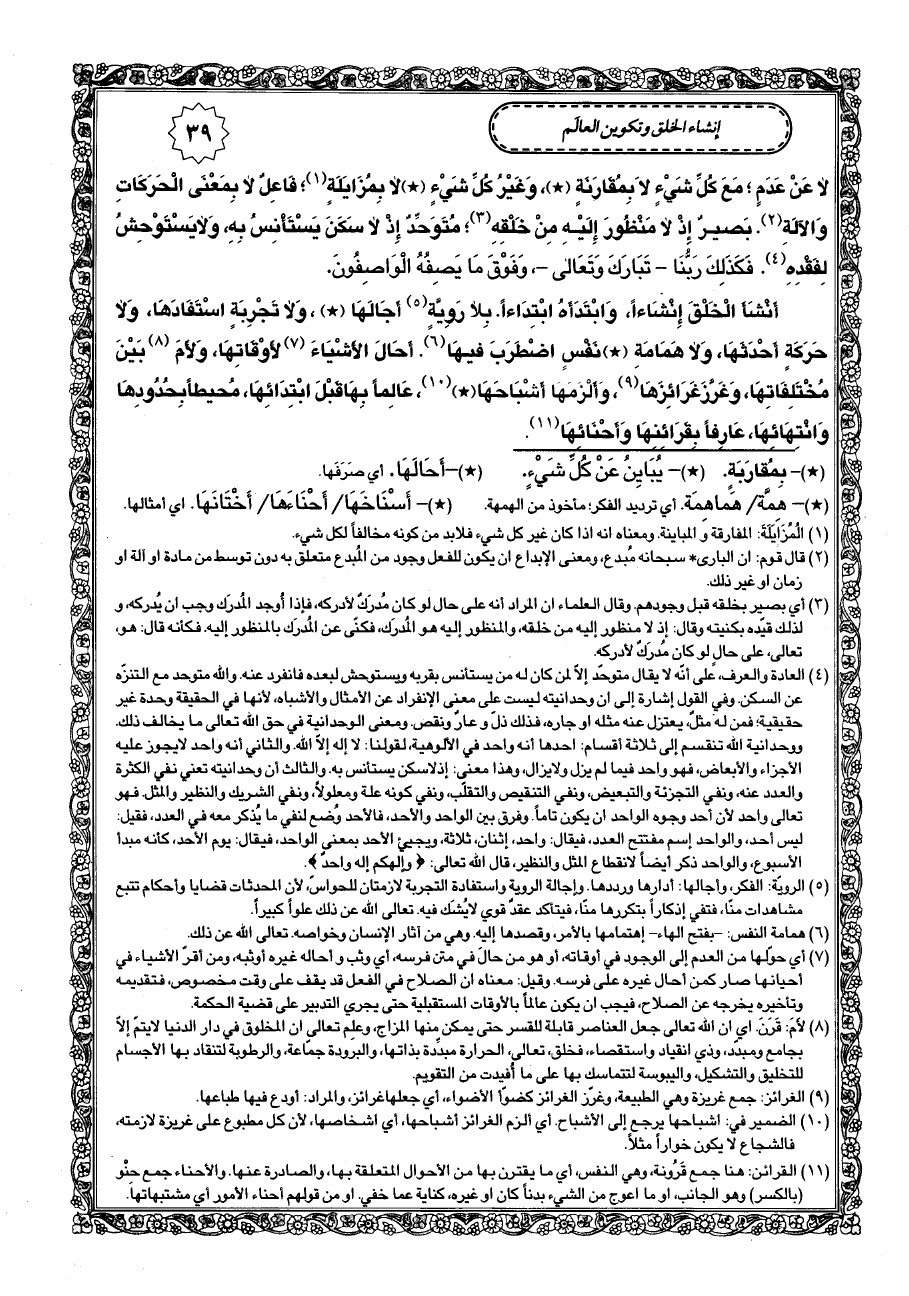 إنشاء الخلق وتكوين العالَم
٣٩
لَا عَنْ عَدَمٍ؛ مَعَ كُلِّ شَيْءٍ لَا بِمُقَارَنَةٍ (★)، وَغَيْرُ كُلِّ شَيْءٍ (★) لَا بِمُزَايَلَةٍ(١)؛ فَاعِلٌ لَا بِمَعْنَى الْحَرَكَاتِ
وَالآلَةِ(٢). بَصِيرٌ إِذْ لَا مَنْظُورَ إِلَيْهِ مِنْ خَلْقِهِ(٣)؛ مُتَوَحِّدٌ إِذْ لَا سَكَنَ يَسْتَأْنِسُ بِهِ، وَلَايَسْتَوْحِشُ
لِفَقْدِهِ(٤). فَكَذَلِكَ رَبُّنَا - تَبَارَكَ وَتَعَالَى -، وَفَوْقَ مَا يَصِفُهُ الْوَاصِفُونَ.
أَنْشَأَ الْخَلْقَ إِنْشَاءاً، وَابْتَدَأَهُ ابْتِدَاءاً. بِلَا رَوِيَّةٍ(٥) أَجَالَهَا (★)، وَلَا تَجْرِبَةٍ اسْتَفَادَهَا، وَلَا
حَرَكَةٍ أَحْدَثَهَا، وَلَا هَمَامَةِ (★) نَفْسٍ اضْطَرَبَ فِيهَا(٦). أَحَالَ الأَشْيَاءَ(٧) لأَوْقَاتِهَا، وَلأَمَ(٨) بَيْنَ
مُخْتَلِفَاتِهَا، وَغَرَّزَ غَرَائِزَهَا(٩)، وَأَلْزَمَهَا أَشْبَاحَهَا(★)(١٠)، عَالِماً بِهَا قَبْلَ ابْتِدَائِهَا، مُحِيطاً بِحُدُودِهَا
وَانْتِهَائِهَا، عَارِفاً بِقَرَائِنِهَا وَأَحْنَائِهَا(١١).
(★)- بِمُقَارَبَةٍ. (★)- يُبَايِنُ عَنْ كُلِّ شَيْءٍ. (★)- أَحَالَهَا. أي صَرَفَها.
(★)- هِمَّة/ هَمَاهِمَة. أي ترديد الفكر؛ مأخوذ من الهمهة. (★)- أَسْنَاخَهَا/ أَحْنَاءَهَا/ أَخْتَانَهَا. اي أمثالها.
(١) الْمُزَايَلَةَ: المفارقة و المباينة. ومعناه انه اذا كان غير كل شيء فلابد من كونه مخالفاً لكل شيء.
(٢) قال قوم: ان البارى* سبحانه مُبدع، ومعنى الإبداع ان يكون للفعل وجود من المُبدع متعلق به دون توسط من مادة او آلة او
زمان او غير ذلك.
(٣) أي بصير بخلقه قبل وجودهم. وقال العلماء ان المراد أنه على حال لو كان مدركٌ لأدركه، فإذا أُوجد المُدرَك وجب ان يُدركه، و
لذلك قيّده بكنيته وقال: إذ لا منظور إليه من خلقه، والمنظور إليه هو المُدرَك، فكنّى عن المُدرَك بالمنظور إليه. فكأنه قال: هو،
تعالى، على حالٍ لو كان مُدرَكٌ لأدركه.
(٤) العادة والعرف، على أنه لا يقال متوحدّ إلاّ لمن كان له من يستأنس بقربه ويستوحش لبعده فانفرد عنه. والله متوحد مع التنزّه
عن السكن. وفي القول إشارة إلى ان وحدانيته ليست على معنى الإنفراد عن الأمثال والأشباه، لأنها في الحقيقة وحدة غير
حقيقية؛ فمن له مثلٌ، يعتزل عنه مثله او جاره، فذلك ذلّ و عارٌ ونقص. ومعنى الوحدانية في حق الله تعالى ما يخالف ذلك.
ووحدانية الله تنقسم إلى ثلاثة أقسام: احدها أنه واحد في الألوهية، لقولنا: لا إله إلاّ الله. والثاني أنه واحد لايجوز عليه
الأجزاء والأبعاض، فهو واحد فيما لم يزل ولايزال، وهذا معنى: إذلاسكن يستأنس به. والثالث أن وحدانيته تعني نفي الكثرة
والعدد عنه، ونفي التجزئة والتبعيض، ونفي التنقيص والتقلّب، ونفي كونه علة ومعلولاً، ونفي الشريك والنظير والمثل. فهو
تعالى واحد لأن أحد وجوه الواحد ان يكون تاماً. وفرق بين الواحد والأحد، فالأحد وُضع لنفي ما يُذكر معه في العدد، فقيل:
ليس أحد، والواحد إسم مفتتح العدد، فيقال: واحد، إثنان، ثلاثة، ويجيئ الأحد بمعنى الواحد، فيقال: يوم الأحد، كأنه مبدأ
الأسبوع، والواحد ذكر أيضاً لانقطاع المثل والنظير، قال الله تعالى: ﴿ وإلهكم إله واحدٌ ﴾.
(٥) الرويّة: الفكر، وأجالها: أدارها ورددها. وإجالة الروية واستفادة التجربة لازمتان للحواسّ، لأن المحدثات قضايا وأحكام تتبع
مشاهدات منّا، فتفي إذكاراً بتكررها منّا، فيتأكد عقدٌ قوي لايُشك فيه. تعالى الله عن ذلك علواً كبيراً.
(٦) همامة النفس: -بفتح الهاء- إهتمامها بالأمر، وقصدها إليه. وهي من آثار الإنسان وخواصه. تعالى الله عن ذلك.
(٧) أي حوّلها من العدم إلى الوجود في أوقاته، أو هو من حالَ في متن فرسه، أي وثب و أحاله غيره أوثبه، ومن أقرّ الأشياء في
أحيانها صار كمن أحال غيره على فرسه. وقيل: معناه ان الصلاح في الفعل قد يقف على وقت مخصوص، فتقديمه
وتأخيره يخرجه عن الصلاح، فيجب ان يكون عالماً بالأوقات المستقبلية حتى يجري التدبير على قضية الحكمة.
(٨) لأمَ: قَرَنَ. اي ان الله تعالى جعل العناصر قابلة للقسر حتى يمكن منها المزاج، وعلم تعالى ان المخلوق في دار الدنيا لايتمّ إلاّ
بجامع ومبدّد، وذي انقياد واستقصاء، فخلق، تعالى، الحرارة مبدّدة بذاتها، والبرودة جمّاعة، والرطوبة لتنقاد بها الأجسام
للتخليق والتشكيل، واليبوسة لتتماسك بها على ما أُفيدت من التقويم.
(٩) الغرائز: جمع غريزة وهي الطبيعة، وغرّز الغرائز كضوّأ الأضواء، أي جعلهاغرائز، والمراد: أودع فيها طباعها.
(١٠) الضمير في: اشباحها يرجع إلى الأشباح. أي ألزم الغرائز أشباحها، أي اشخاصها، لأن كل مطبوع على غريزة لازمته،
فالشجاع لا يكون خواراً مثلاً.
(١١) القرائن: هنا جمع قَرُونة، وهي النفس، أي ما يقترن بها من الأحوال المتعلقة بها، والصادرة عنها. والأحناء جمع حِنْو
(بالكسر) وهو الجانب، او ما اعوج من الشيء بدناً كان او غيره، كناية عما خفي. او من قولهم أحناء الأمور أي مشتبهاتها.